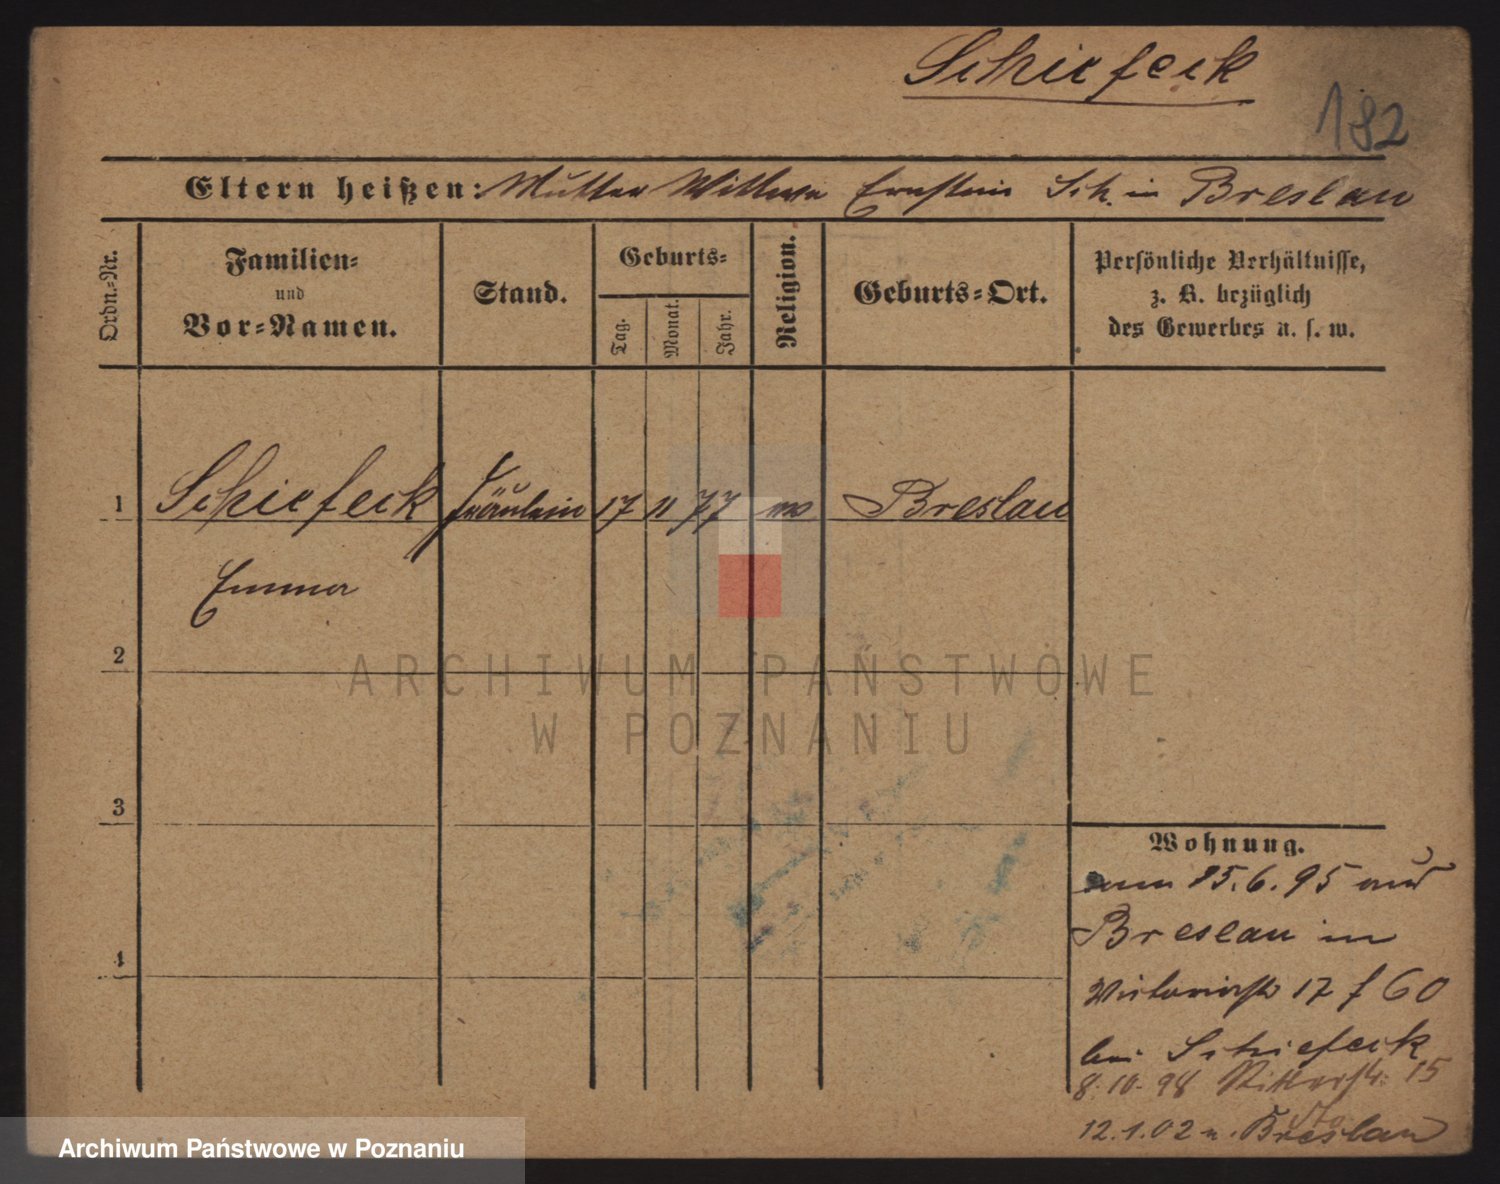 Schiefeck
182
Eltern heißen: Mutter Wittwe Ernstein Sch. in Breslau
Ordn.-Nr.
Familien-
und
Vor-Namen.
Stand.
Geburts-
Tag.
Monat.
Jahr.
Religion.
Geburts-Ort.
Persönliche Verhältnisse,
z. B. bezüglich
des Gewerbes u. s. w.
1 Schiefeck Fräulein 17 11 77 Breslau
Emma
2
ARCHIWUM PAŃSTWOWE
W POZNANIU
3
Wohnung.
15.6.95 aus
Breslau in
Victoriastr 17 f 60
bei Schiefeck
4
8.10.98 Ritterstr. 15
12.1.02 n. Breslau
Archiwum Państwowe w Poznaniu